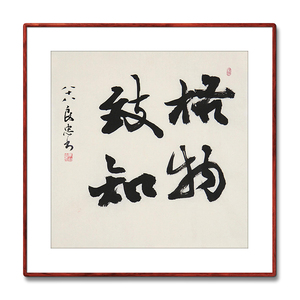 格物
致知
八十八良忠书